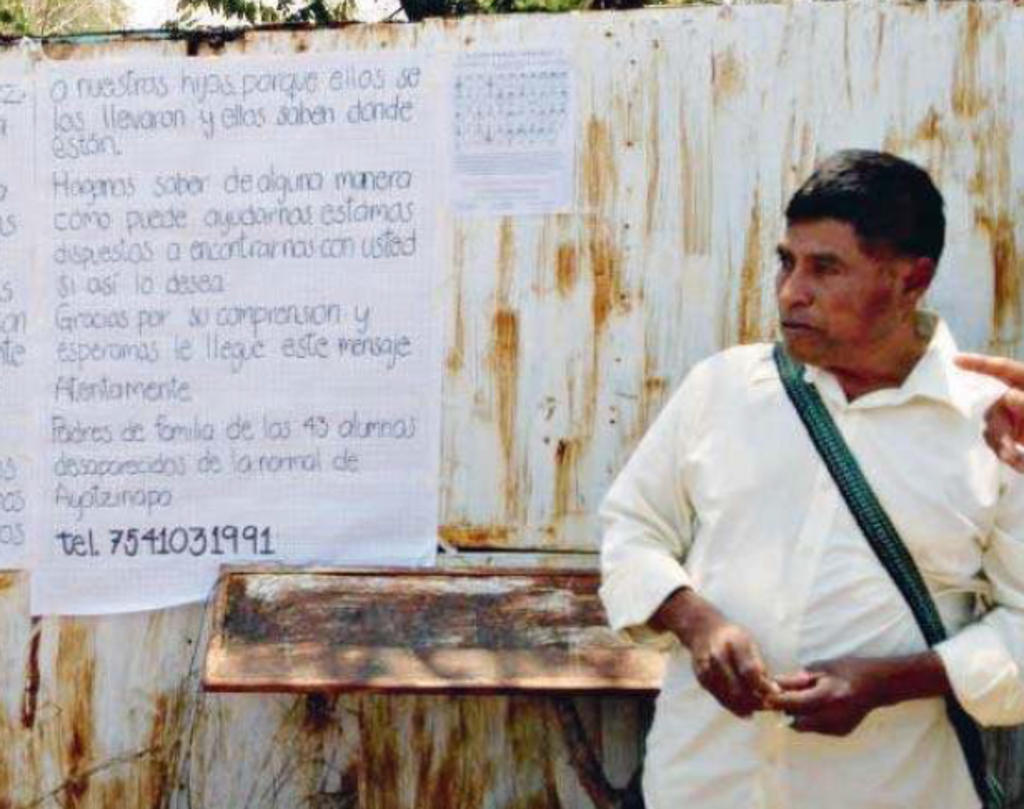 a nuestros hijos, porque ellos se
los llevaron y ellos saben donde
están.
Haganos saber de alguna manera
como puede ayudarnos estamos
dispuestos a encontrarnos con usted
si así lo desea
Gracias por su comprensión y
esperamos le llegue este mensaje
Atentamente
Padres de familia de los 43 alumnos
desaparecidos de la normal de
Ayotzinapa
tel. 7541031991